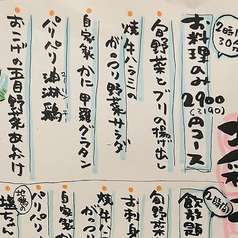 2時間
30分
お料理のみ2900円コース
(3190)
旬野菜とブリの揚げ出し
焼牛ハラミのがっつり野菜サラダ
自家製かに甲羅グラタン
パリパリ油淋鶏
おこげの五目野菜あんかけ
2時間
飲放題
旬野菜
お刺身
焼牛ハ
がっつ
自家製
パリパリ
地鶏の
塩ちゃ